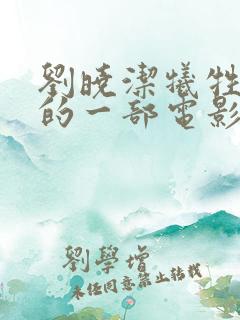 劉曉潔犧牲
的一部電影
劉學增
未經同意禁止轉載